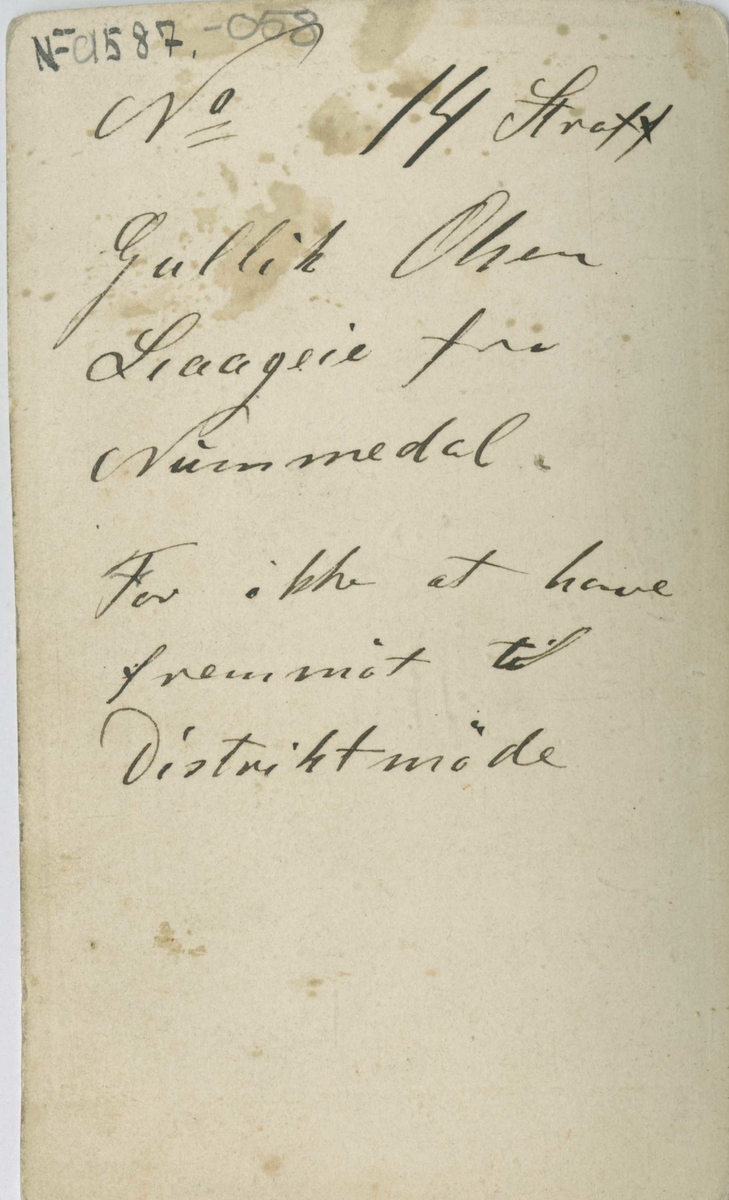 No 1587. -058
No 14 Straff
Gullik Olsen
Liaageie fra
Nummedal.
For ikke at have
fremmöt til
Distriktmöde